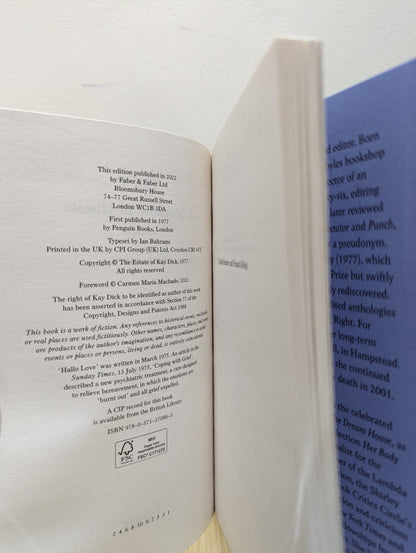 This edition published in 2022
by Faber & Faber Ltd
Bloomsbury House
74–77 Great Russell Street
London WC1B 3DA
First published in 1977
by Penguin Books, London
Typeset by Ian Bahrami
Printed in the UK by CPI Group (UK) Ltd, Croydon CR0 4YY
Copyright © The Estate of Kay Dick, 1977
All rights reserved
Foreword © Carmen Maria Machado, 2022
The right of Kay Dick to be identified as author of this work
has been asserted in accordance with Section 77 of the
Copyright, Designs and Patents Act 1988
This book is a work of fiction. Any references to historical events, real people
or real places are used fictitiously. Other names, characters, places, and events
are products of the author's imagination, and any resemblance to actual
events or places or persons, living or dead, is entirely coincidental
'Hallo Love' was written in March 1975. An article in the
Sunday Times, 13 July 1975, 'Coping with Grief',
described a new psychiatric treatment, a cure designed
to relieve bereavement, in which the emotions are
'burnt out' and all grief expelled.
A CIP record for this book
is available from the British Library
ISBN 978–0–571–37086–3
FSC
MIX
2 4 6 8 10 9 7 5 3 1
d editor. Born
oyles bookshop
ector of an
ty-six, editing
later reviewed
ectator and Punch,
a pseudonym.
(1977), which
Prize but swiftly
rediscovered.
edited anthologies
Right. For
r long-term
l, in Hampstead.
she continued
death in 2001.
the celebrated
e Dream House, as
llection Her Body
r of the Lambda
the Shirley
Book Critics Circle's
tion and criticism
ew York Times and
llowships from